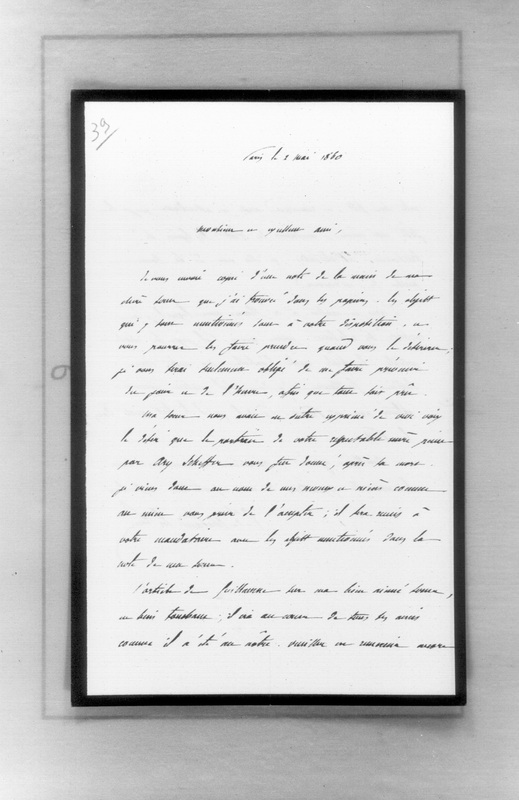 39/
Paris le 2 mai 1860
Monsieur et excellent ami,
Je vous envoie copie d'une note de la main de ma
chère sœur que j'ai trouvée dans ses papiers. les objets
qui y sont mentionnés sont à votre disposition, et
vous pourrez les faire prendre quand vous le désirerez;
je vous serai seulement obligé de me faire prévenir
du jour et de l'heure, afin que tout soit prêt.
Ma sœur nous avait en outre exprimé de vive voix
le désir que le portrait de votre respectable mère peint
par Ary Scheffer vous fut donné, après sa mort.
je viens donc au nom de mes neveux et nièces comme
au mien vous prier de l'accepter; il sera remis à
votre mandataire avec les objets mentionnés dans la
note de ma sœur.
L'article de Guillaume sur ma bien aimée sœur,
est bien touchant; il ira au cœur de tous ses amis
comme il a été au nôtre. veuillez en remercier encore